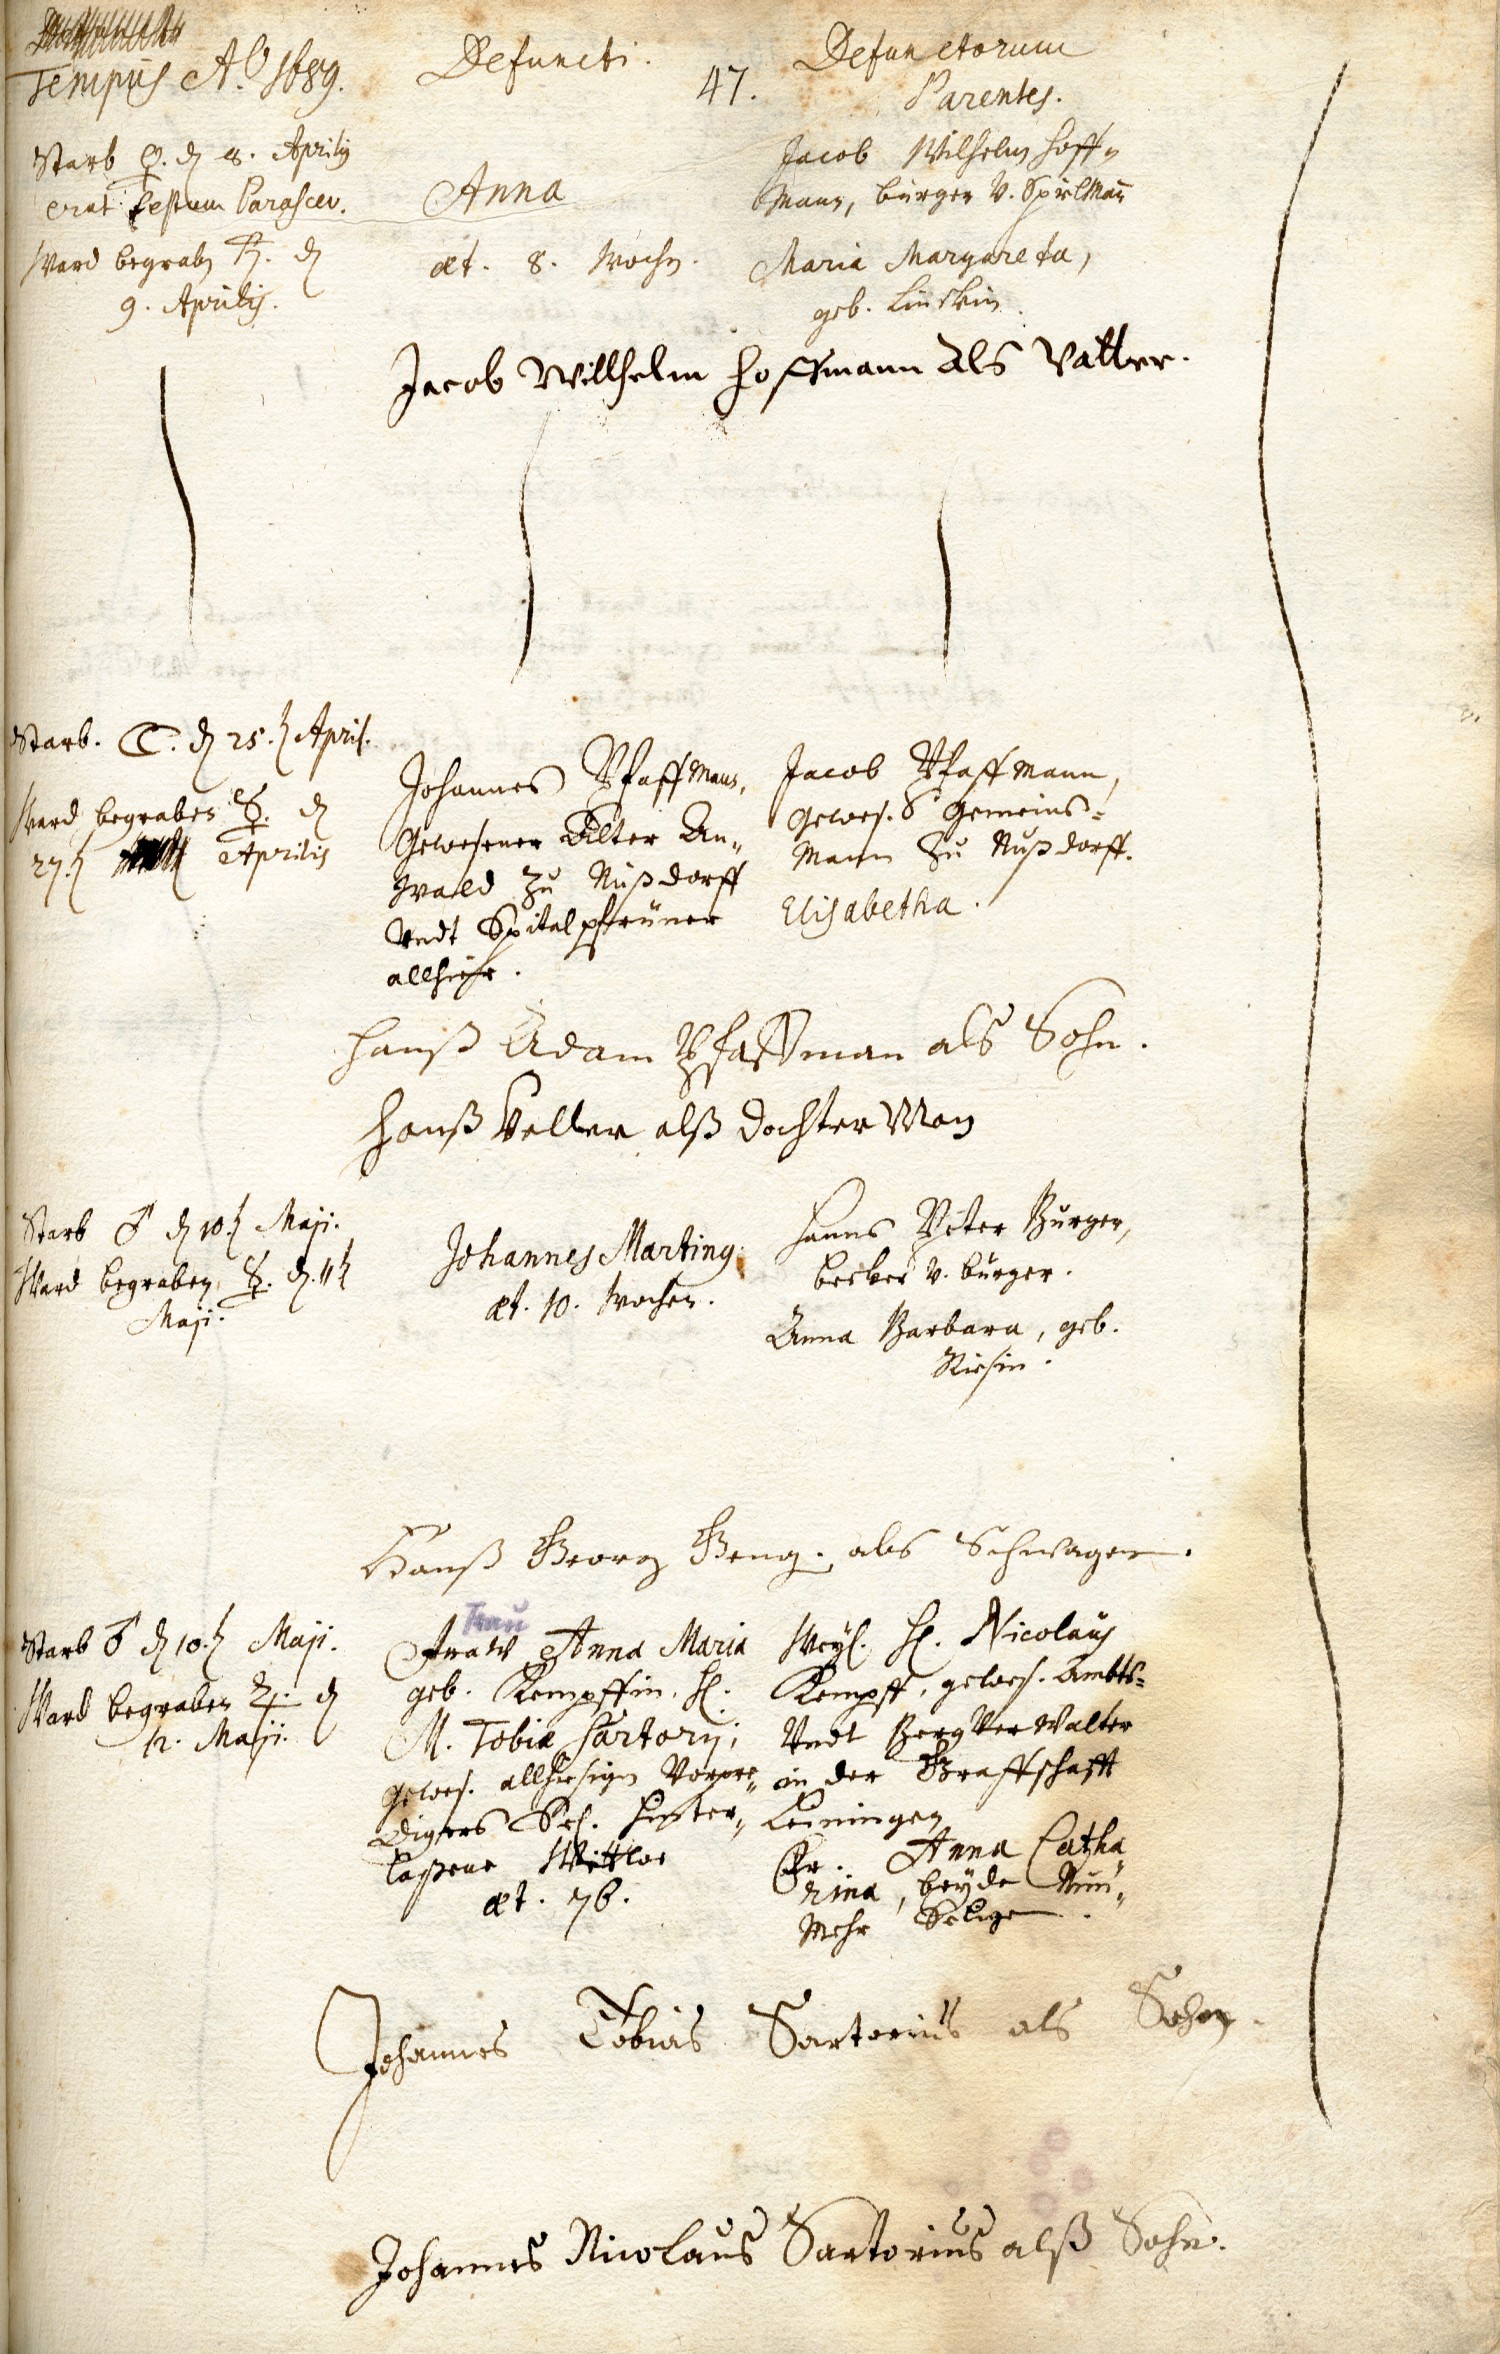 Tempus Aō. 1689.
Defuncti.
47.
Defunctorum
Parentes.
Starb ♀. d 8. Aprilis
erat festum Parascev.
Ward begrabn ♄. d
9. Aprilis.
Anna
æt. 8. Wochn.
Jacob Wilhelm Hoff=
mann, burger v. Spielman
Maria Margareta,
geb.
Jacob Willhelm Hoffmann Als Vatter.
Starb. ☾. d 25.t April.
Ward begraben ☿. d
27.t Aprilis
Johannes Pfaffmann,
Gewesener Alter An„
wald zu Nußdorff
Undt Spitalpfrüner
allhier.
Jacob Pfaffmann,
Gewes. Gemeins=
Mann zu Nußdorff.
Elisabetha.
Hanß Adam Pfaffman als Sohn.
Hanß Veller alß dochter Man
Starb ♂ d 10.t Maji.
Ward begraben ☿. d. 11t
Maji.
Johannes Marting.
æt. 10. Wochen.
Hanns Peter Burger,
becker v. burger.
Anna Barbara, geb.
Risin.
Hanß Georg Geng. als Schwager.
Starb ♂ d 10.t Maji.
Ward begraben ♃. d
12. Maji.
Frau
Fraw Anna Maria
geb. Kempffin, H.
M. Tobiæ Sartorij,
gewes. allhiesigen Vorpre„
digers Sel. Hinter„
laßene Wittwe
æt. 76.
Weyl. H. Nicolaus
Kempff, gewes. Ambts=
Undt Bergverwalter
in der Graffschafft
Leiningen
Fr. Anna Catha„
rina, beyde Nun„
Mehr Selige.
Johannes Tobias Sartorius als Sohn.
Johannes Nicolaus Sartorius alß Sohn.